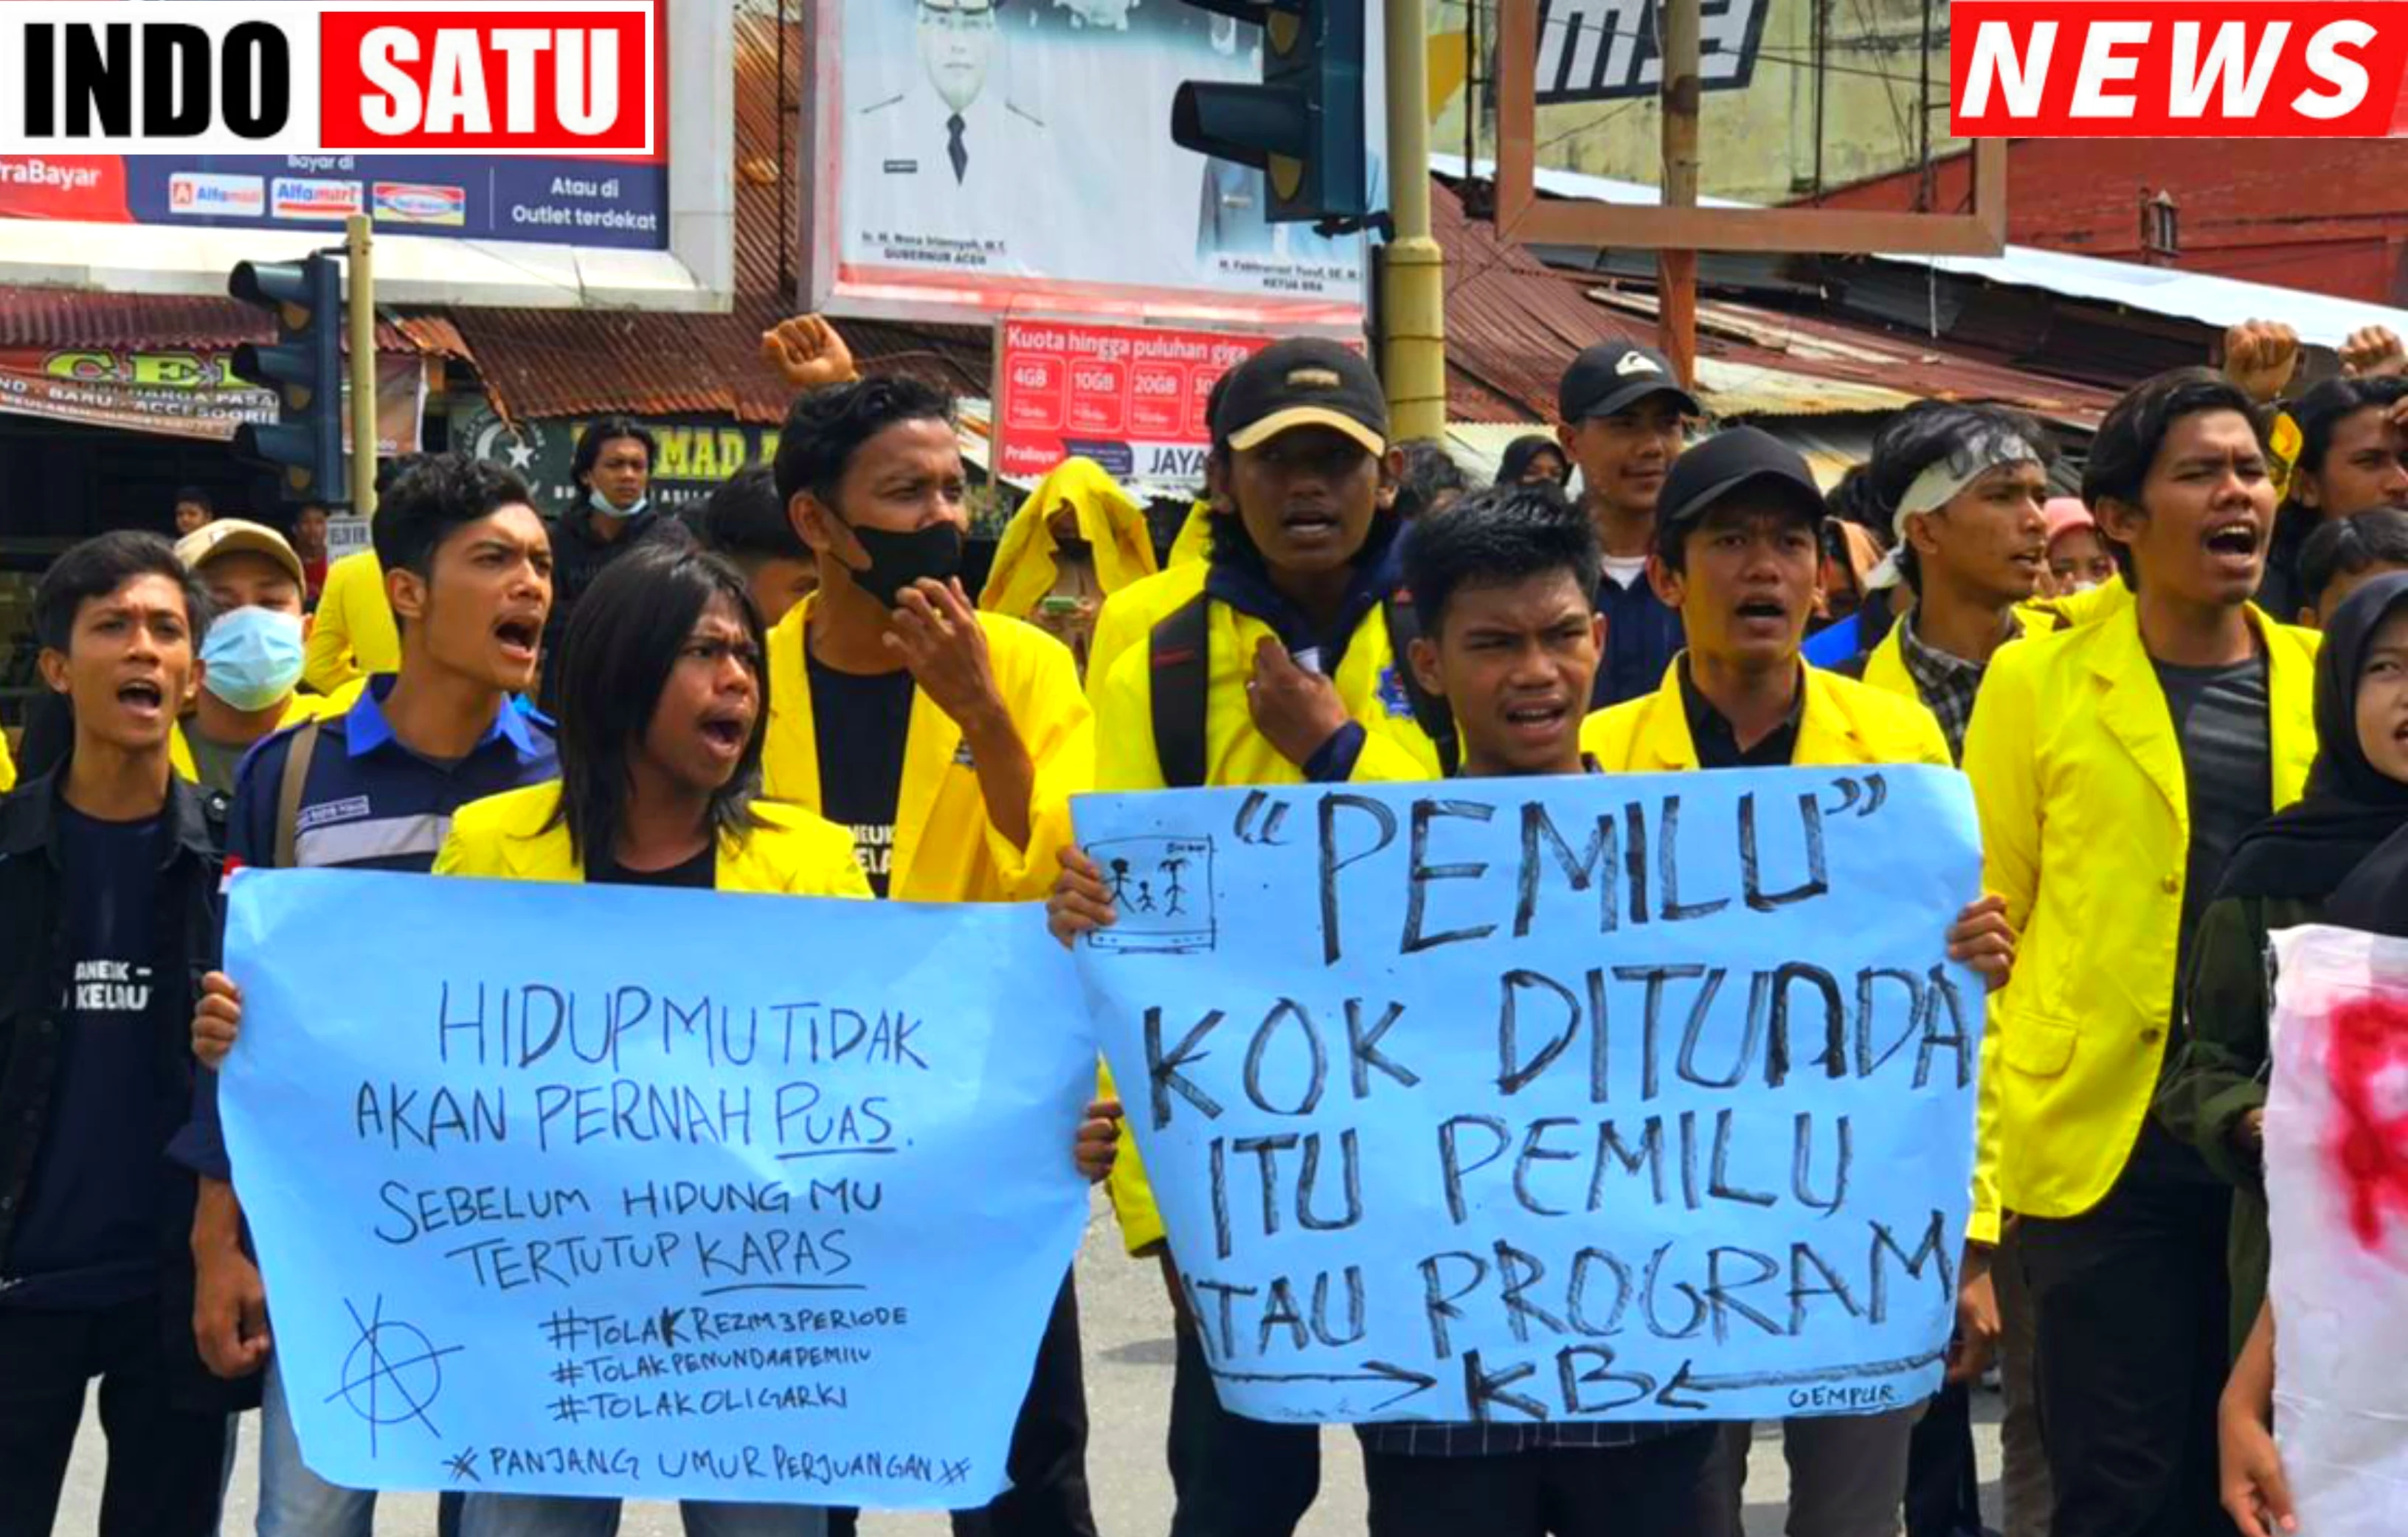 INDO SATU
NEWS
raBayar
Bayar di
Alfamidi Alfamart
Atau di
Outlet terdekat
GUBERNUR ACEH
KETUA BRA
Kuota hingga puluhan giga
4GB 10GB 20GB
PraBayar
JAYA
CEL
HARGA PASA
BARU - ACCESOORIE
MAD
ANEUK -
KELAU
"PEMILU"
KOK DITUNDA
ITU PEMILU
ATAU PROGRAM
KB
GEMPUR
HIDUPMU TIDAK
AKAN PERNAH PUAS.
SEBELUM HIDUNG MU
TERTUTUP KAPAS
#TOLAKREZIM3PERIODE
#TOLAKPENUNDAAPEMILU
#TOLAKOLIGARKI
* PANJANG UMUR PERJUANGAN *